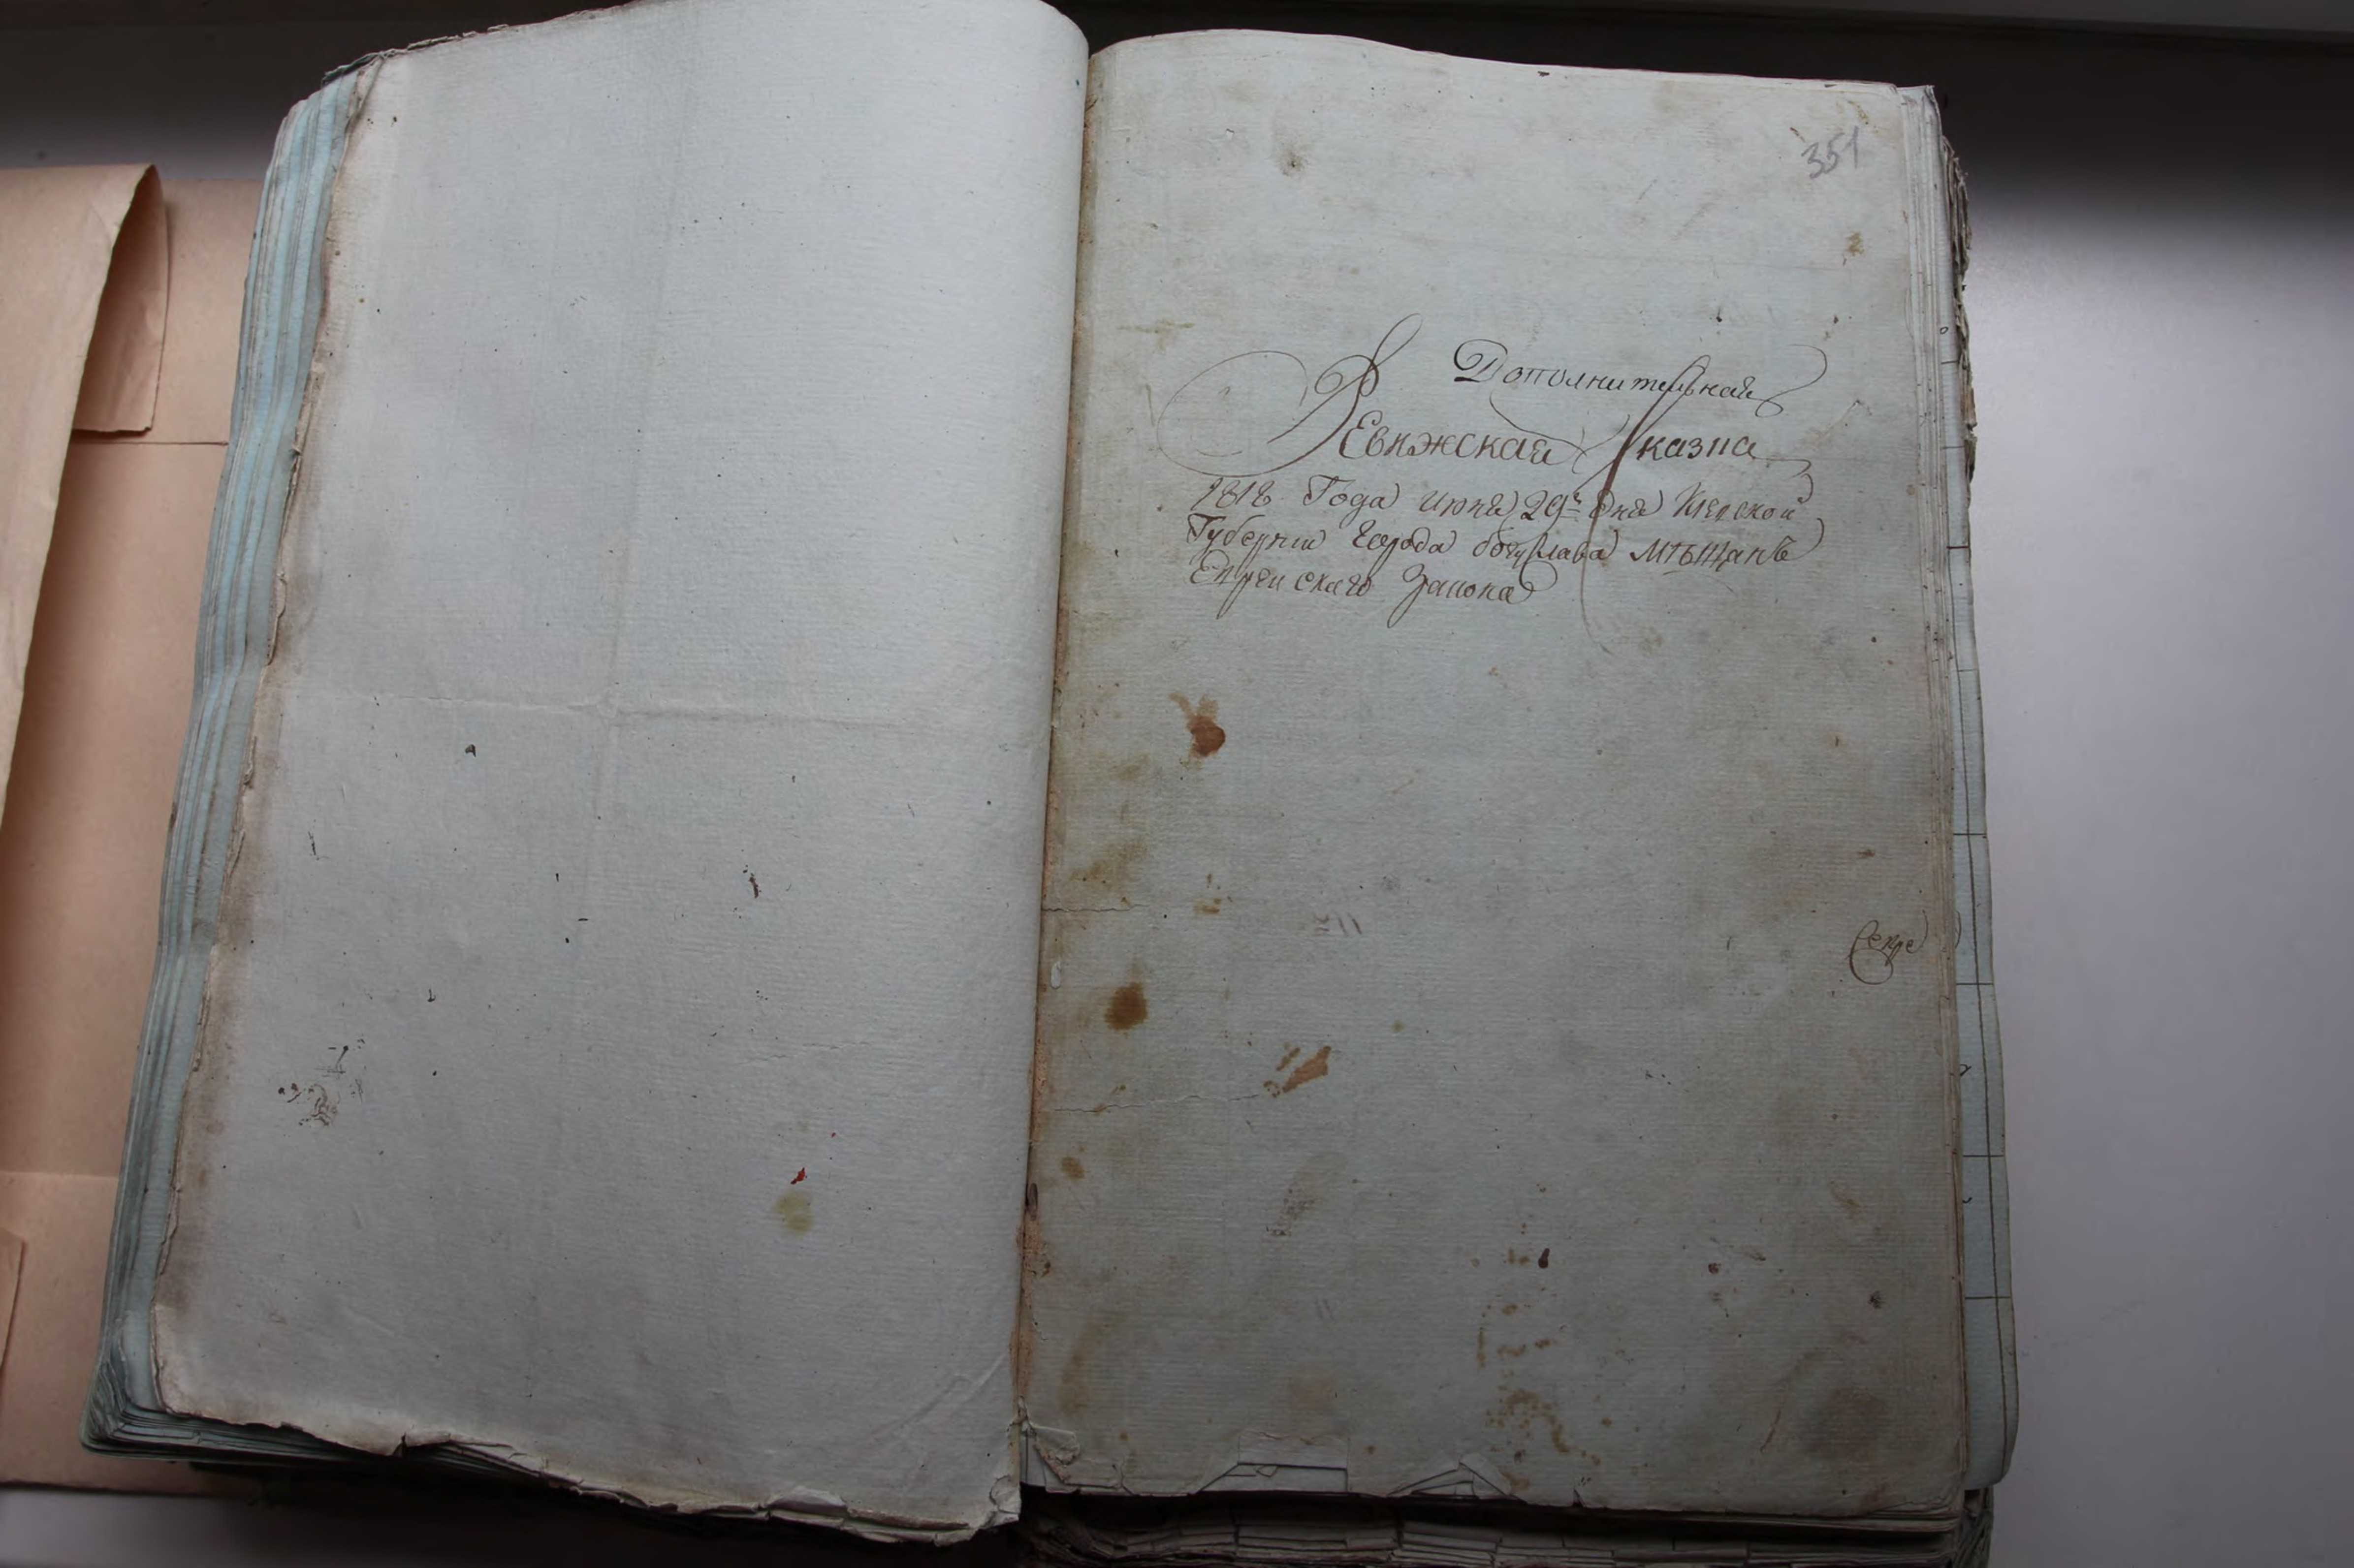 351
Дополнительная
Ревижская Сказка
1818 Года июня 29го дня Киевской
Губернии Города богуслава мѣщанъ
Еврейскаго Закона
Секре